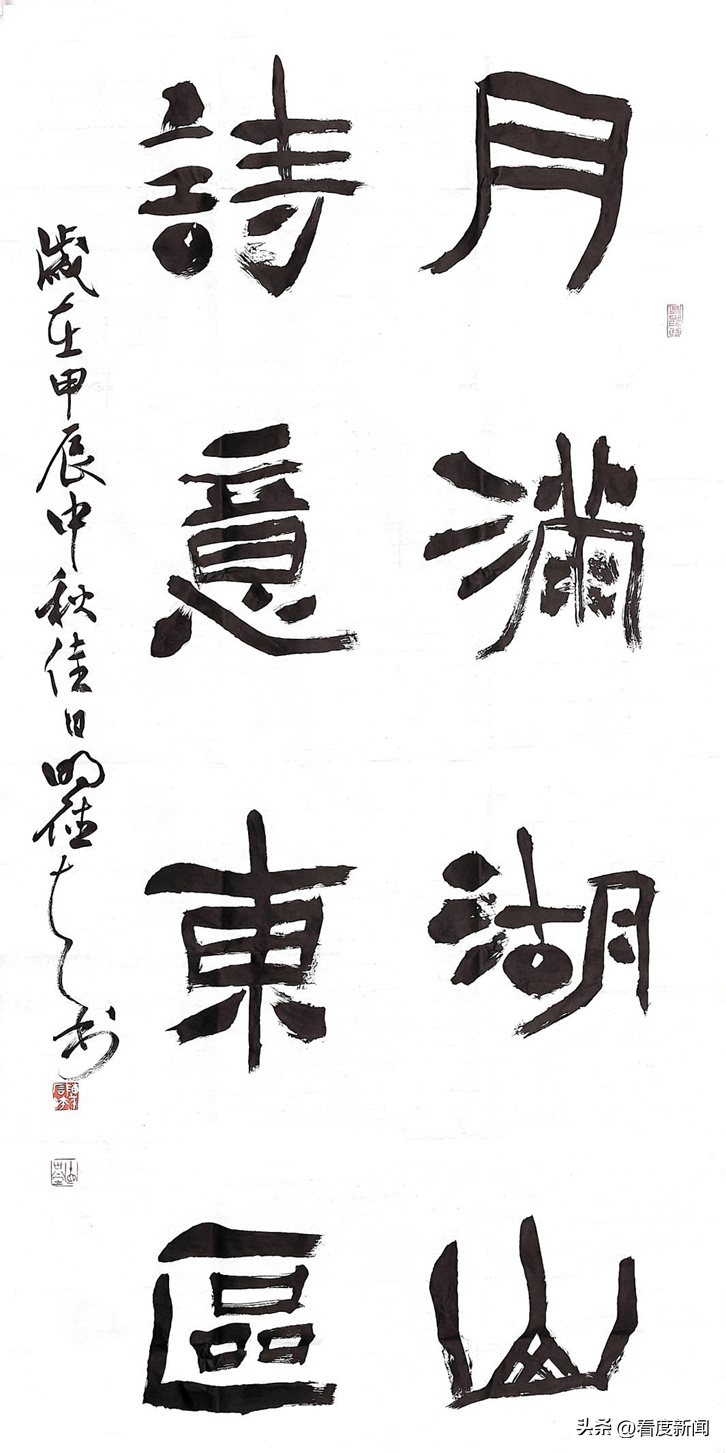 月滿湖山
詩意東區
歲在甲辰中秋佳日
书
头条 @看度新闻